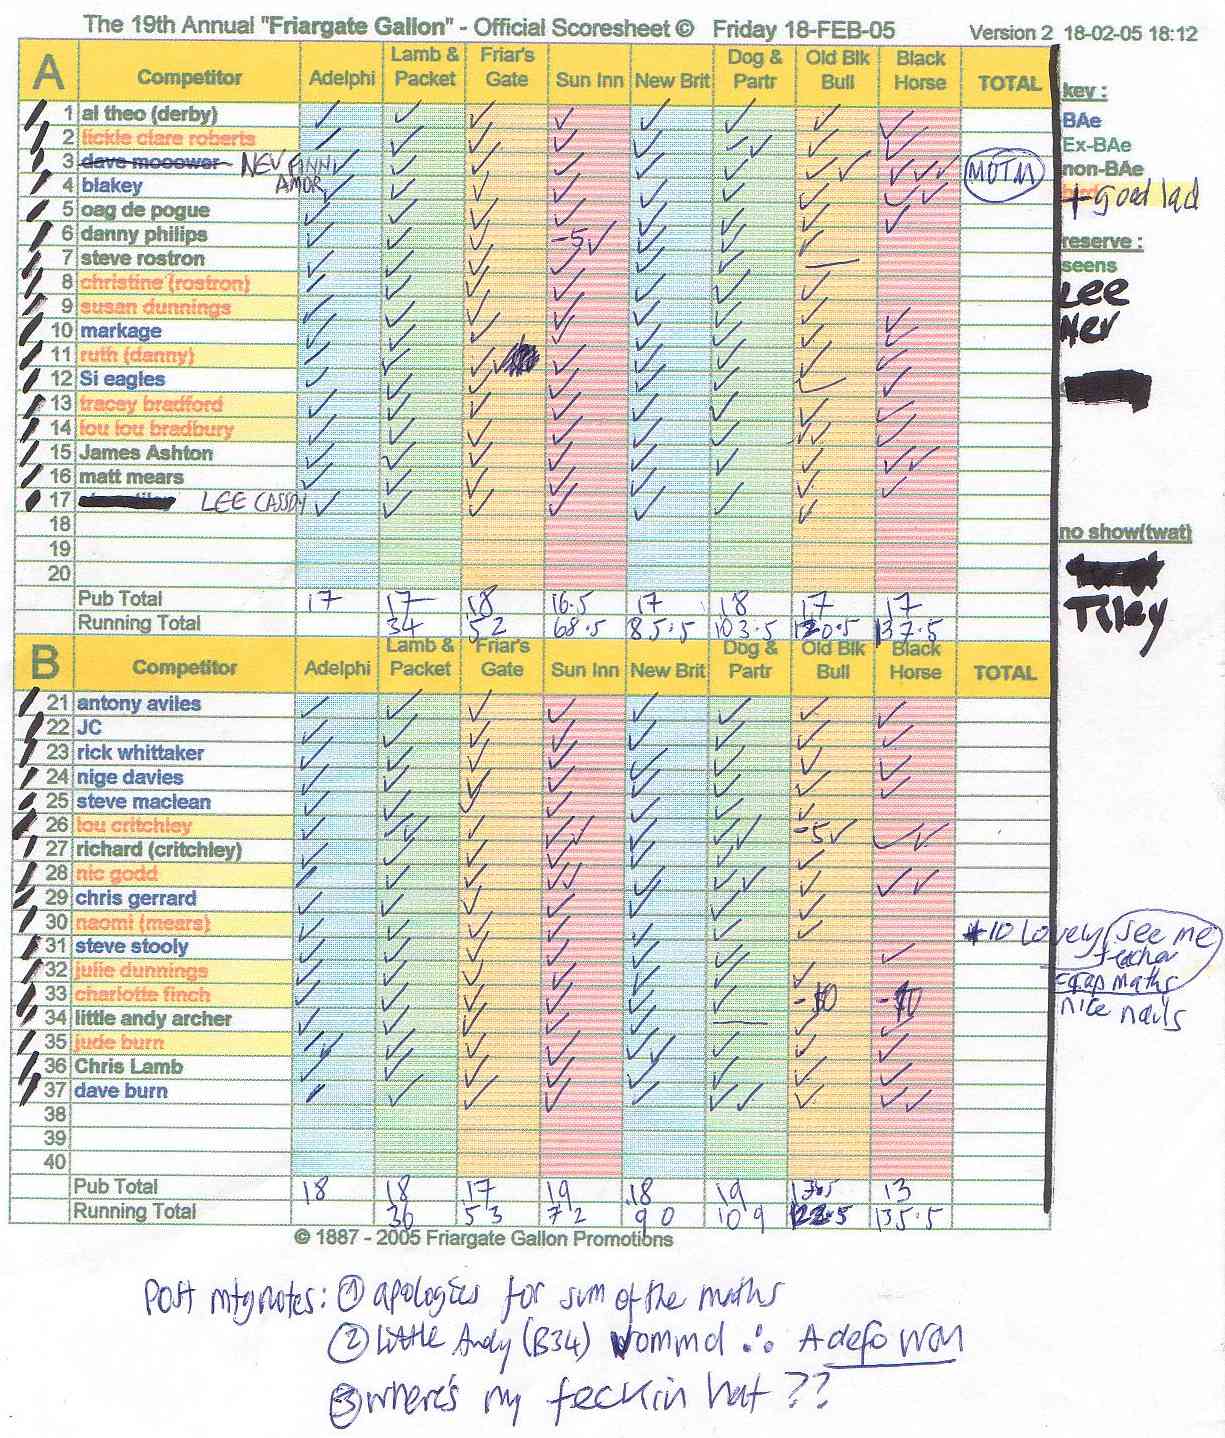 The 19th Annual "Friargate Gallon" - Official Scoresheet © Friday 18-FEB-05 Version 2 18-02-05 18:12
A Competitor Adelphi Lamb & Packet Friar's Gate Sun Inn New Brit Dog & Partr Old Blk Bull Black Horse TOTAL
key :
1 al theo (derby)
BAe
2 lickle clare roberts
Ex-BAe
3 dave mooower NEV FINNI MOTM
non-BAe
4 blakey AMOR
bird
+ good lad
5 oag de pogue
6 danny philips -5
reserve :
7 steve rostron
seens
8 christine (rostron)
Lee
9 susan dunnings
Nev
10 markage
11 ruth (danny)
12 Si eagles
13 tracey bradford
14 lou lou bradbury
15 James Ashton
16 matt mears
17 LEE CASSDY
18
no show(twat)
19
20
Tiley
Pub Total 17 17 18 16.5 17 18 17 17
Running Total 34 52 68.5 85.5 103.5 120.5 137.5
B Competitor Adelphi Lamb & Packet Friar's Gate Sun Inn New Brit Dog & Partr Old Blk Bull Black Horse TOTAL
21 antony aviles
22 JC
23 rick whittaker
24 nige davies
25 steve maclean
26 lou critchley -5
27 richard (critchley)
28 nic godd
29 chris gerrard
30 naomi (mears)
10 Lovely see me
31 steve stooly
teacher
32 julie dunnings
crap maths
33 charlotte finch -10 -10
nice nails
34 little andy archer
35 jude burn
36 Chris Lamb
37 dave burn
38
39
40
Pub Total 18 18 17 19 18 19 13
Running Total 36 53 72 90 109 122.5 135.5
© 1887 - 2005 Friargate Gallon Promotions
Post mtg notes: ① apologies for sum of the maths
② Little Andy (B34) vommd ∴ A defo won
③ where's my feckin hat ??